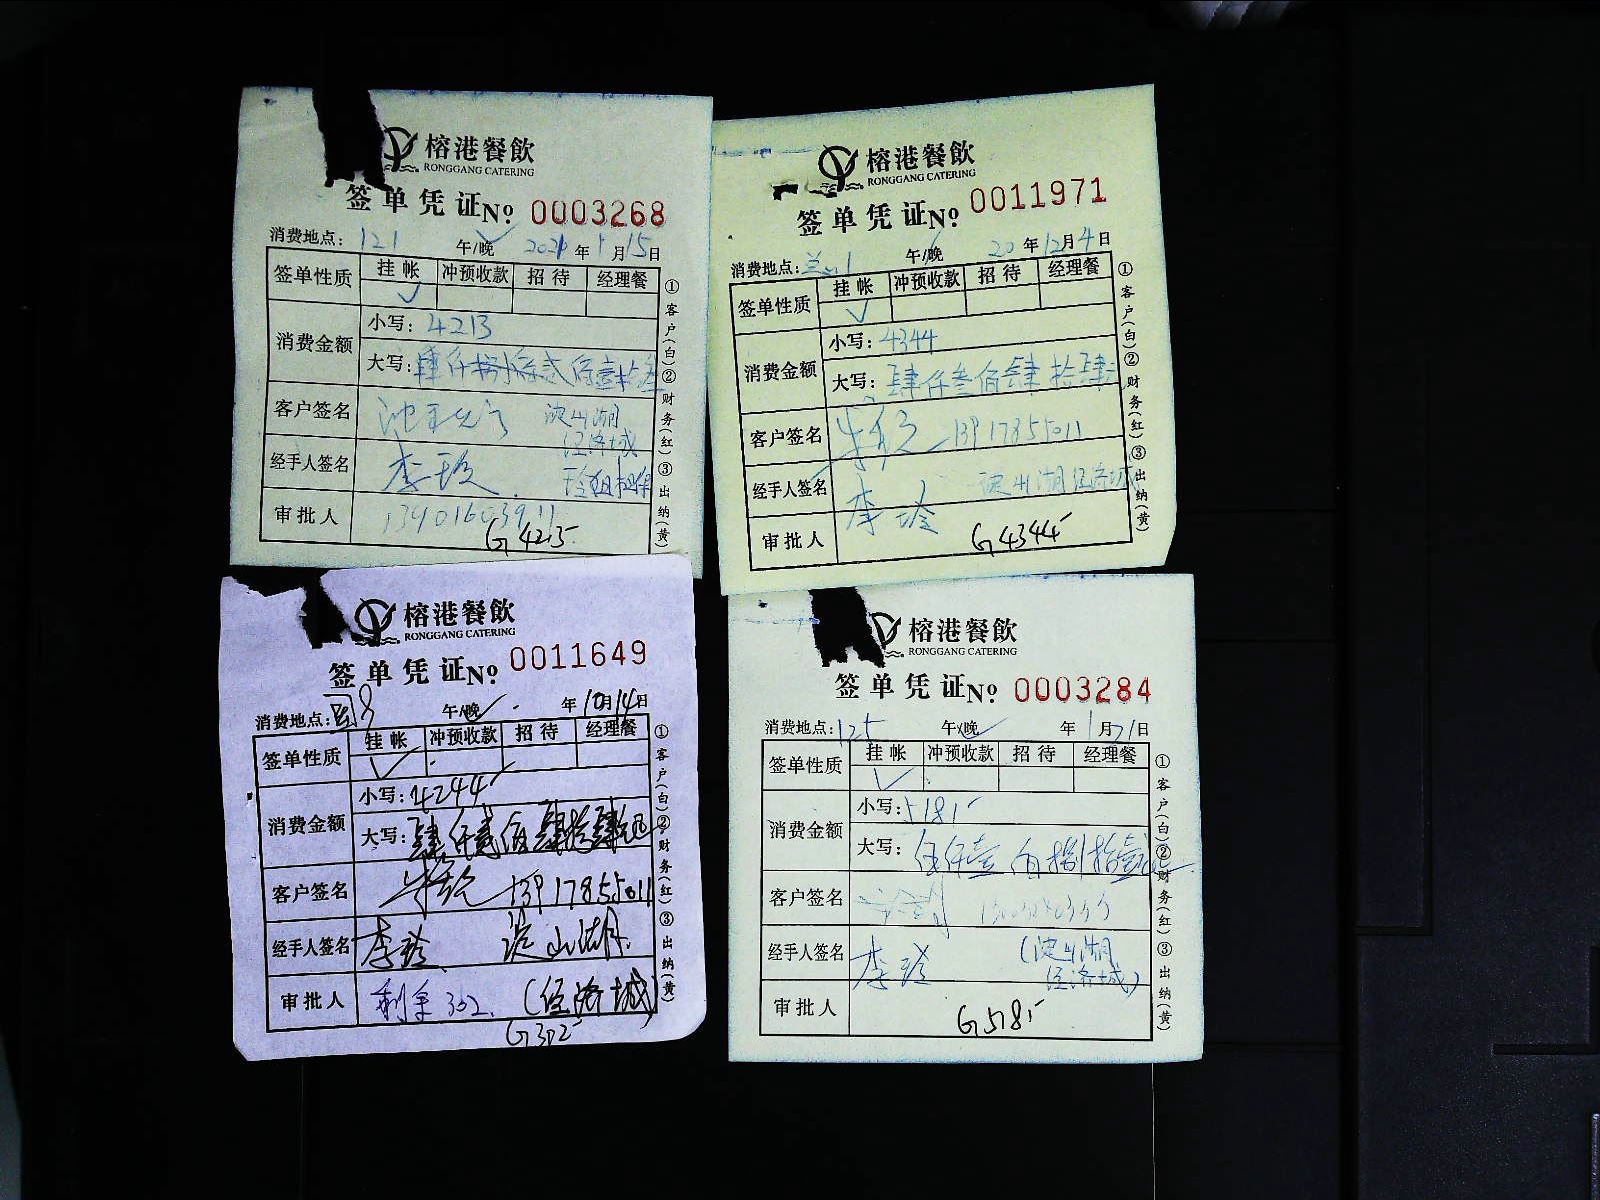 榕港餐飲
RONGGANG CATERING
签单凭证 №. 0003268
消费地点: 121 午/晚 2021年1月15日
签单性质 挂帐 冲预收款 招待 经理餐
消费金额 小写: 4213
大写: 肆仟贰佰壹拾叁
客户签名 淀山湖
经济城
经手人签名 李玲
审批人 13401603911
G 4213
①客户(白)②财务(红)③出纳(黄)
榕港餐飲
RONGGANG CATERING
签单凭证 №. 0011971
消费地点: 午/晚 20年12月4日
签单性质 挂帐 冲预收款 招待 经理餐
消费金额 小写: 4344
大写: 肆仟叁佰肆拾肆元
客户签名 13917855011
经手人签名 李玲 淀山湖经济城
审批人 G 4344
①客户(白)②财务(红)③出纳(黄)
榕港餐飲
RONGGANG CATERING
签单凭证 №. 0011649
消费地点: 午/晚 年10月14日
签单性质 挂帐 冲预收款 招待 经理餐
消费金额 小写: 4244
大写: 肆仟贰佰肆拾肆元
客户签名 13917855011
经手人签名 李玲 淀山湖
审批人 剩余302. (经济城)
G 302
①客户(白)②财务(红)③出纳(黄)
榕港餐飲
RONGGANG CATERING
签单凭证 №. 0003284
消费地点: 125 午/晚 年1月21日
签单性质 挂帐 冲预收款 招待 经理餐
消费金额 小写: 5181
大写: 伍仟壹佰捌拾壹元
客户签名
经手人签名 李玲 (淀山湖
经济城)
审批人 G 5181
①客户(白)②财务(红)③出纳(黄)